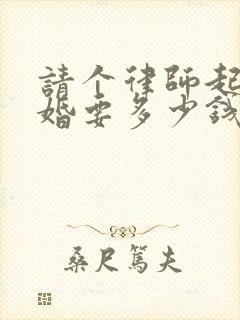 請个律師起
婚要多少錢
桑尺篤夫